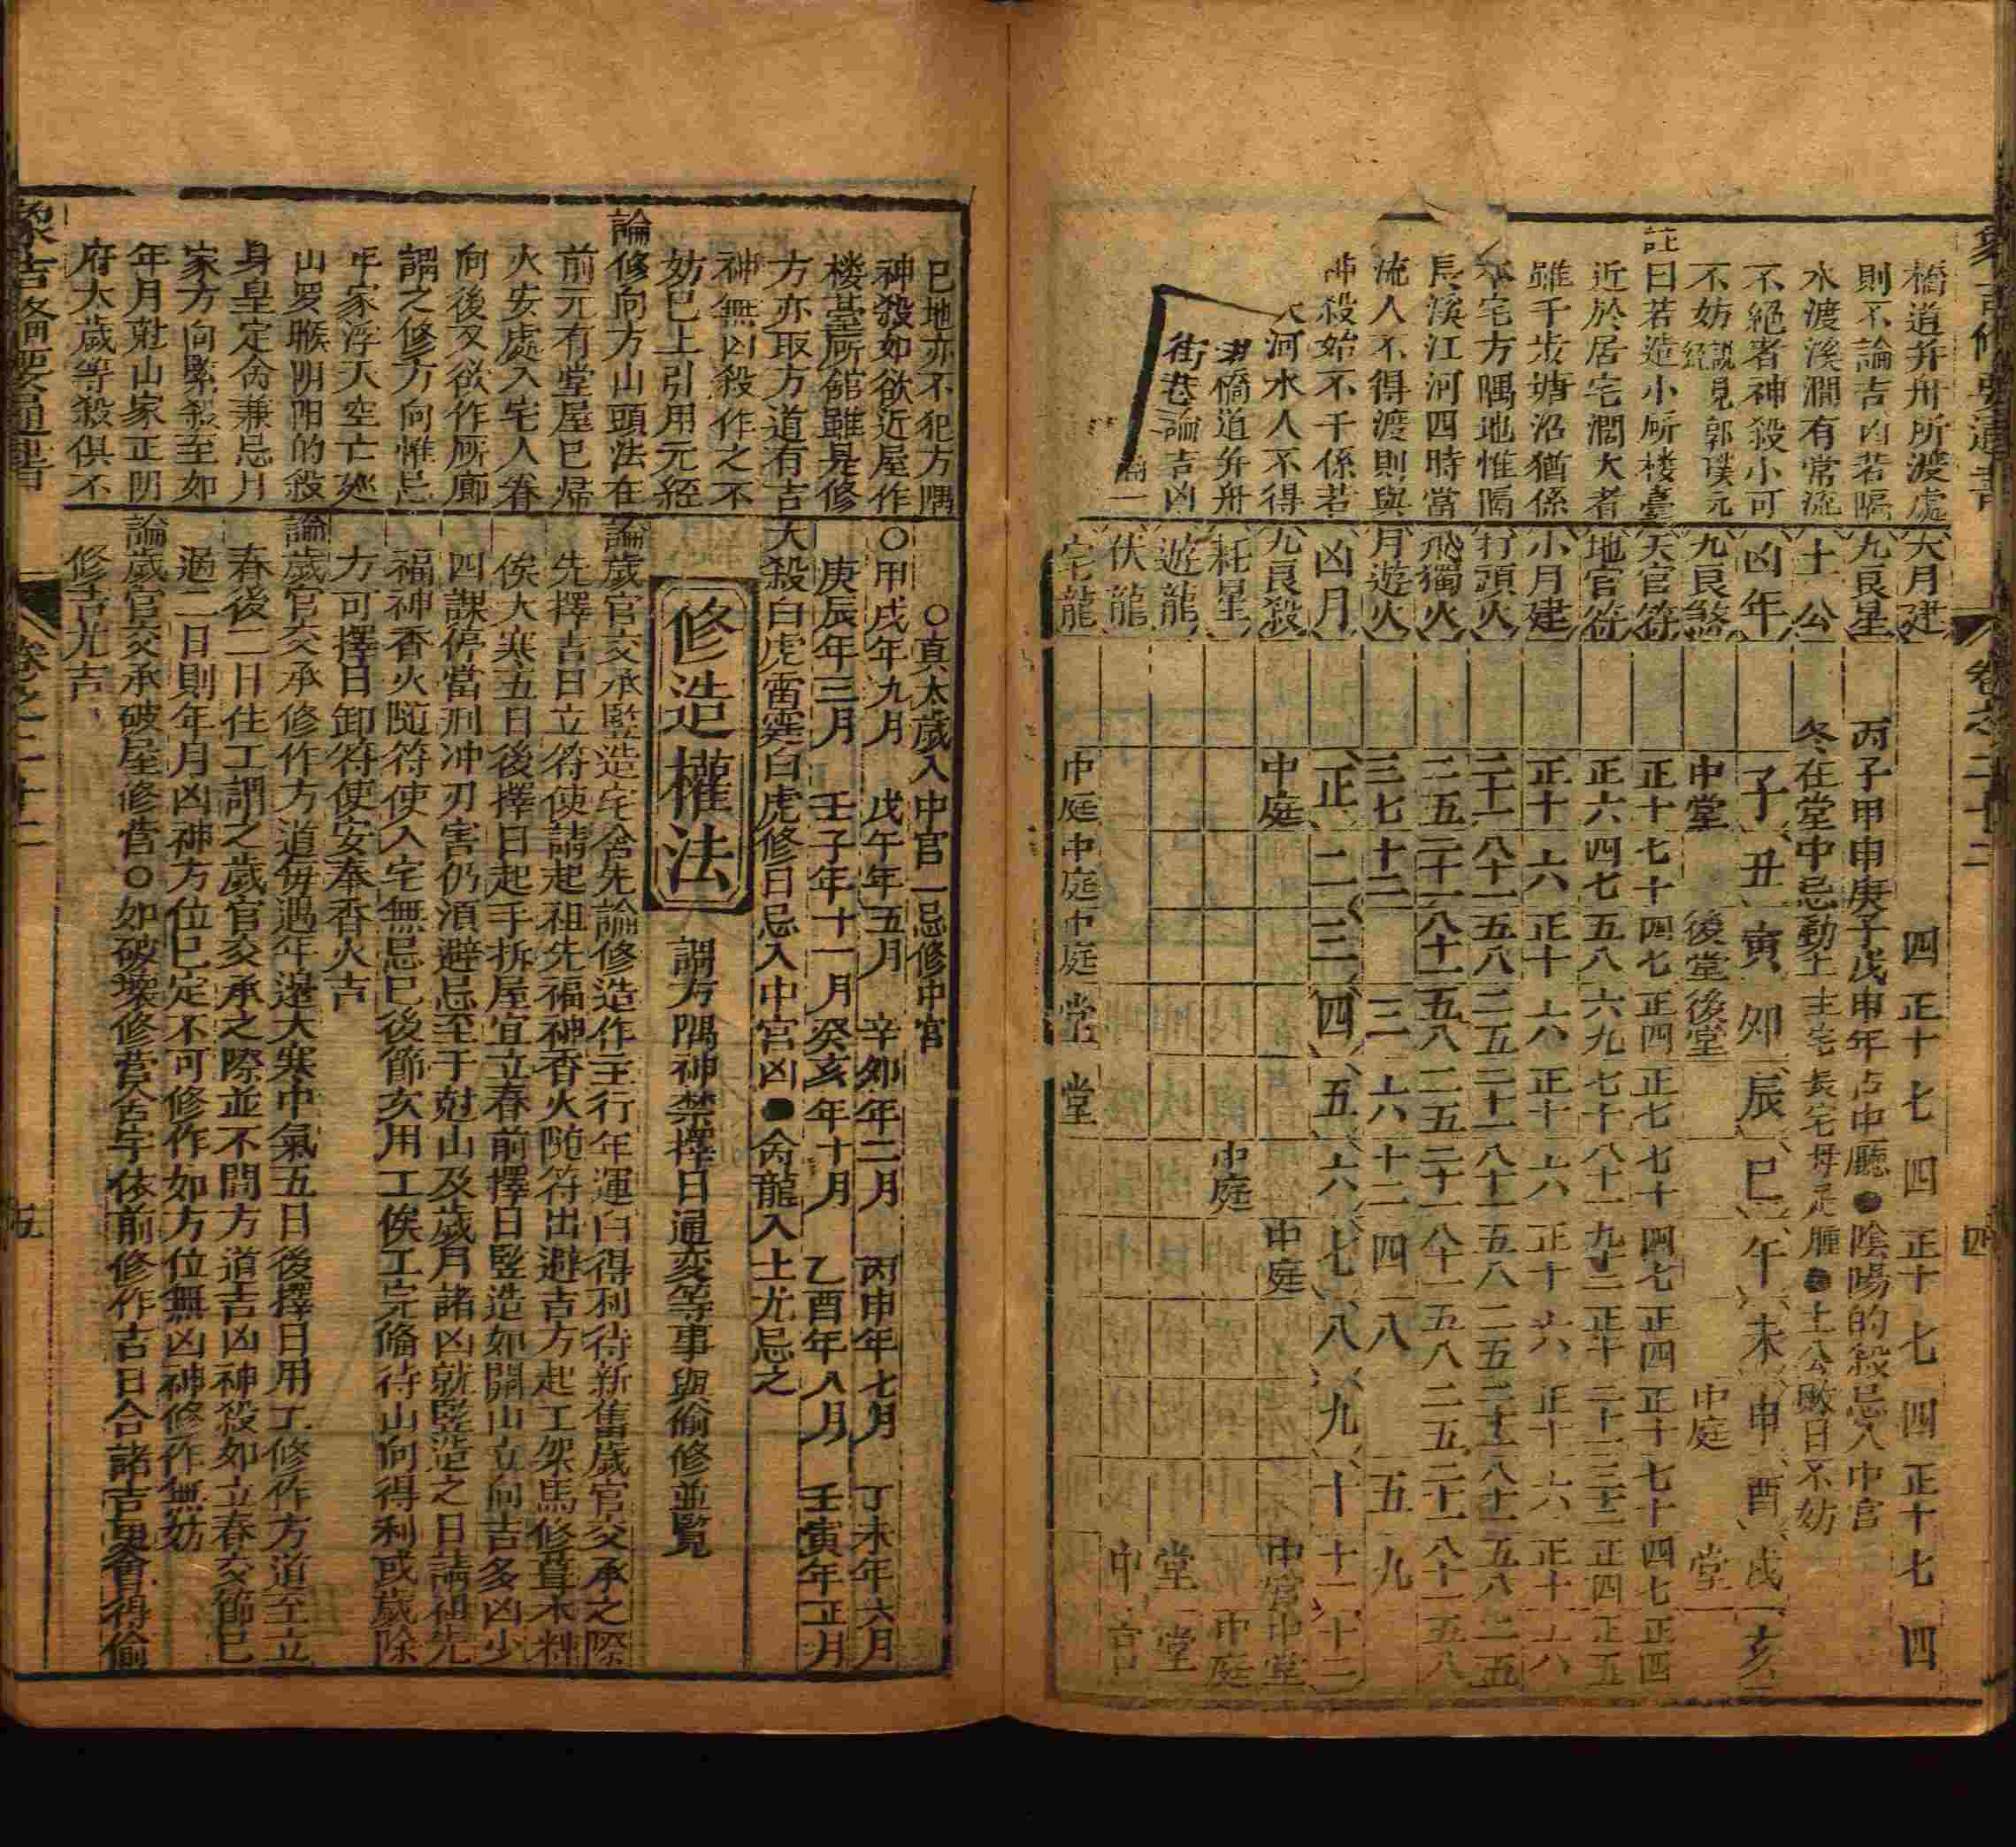 橋道并舟所渡處
則不論吉凶若隔
水渡溪澗有常流
不絕者神殺小可
不妨說見郭璞元經
註曰若造小厠楼臺
近於居宅濶大者
雖千步塘沼猶係
本宅方隅地惟隔
長溪江河四時當
流人不得渡則與
神殺始不干係若
大河水人不得
橋道并舟
街巷論吉凶
論一
大月建 四正十七四正十七四正十七四
九良星 丙子甲申庚子戊申年占中廳●陰陽的殺忌入中宫
土公 冬在堂中忌動土主宅長宅母足腫●土公敗日不妨
凶年 子丑寅卯辰巳午未申酉戌亥
九良煞 中堂 後堂 後堂 中庭 堂
天官符 正十七十四七正四正七七十四七正四正十七十四七正四
地官符 正六四七五八六九七十八十一九十二正十二十一三十二正四正五
小月建 正十六正十六正十六正十六正十六正十六
打頭火 二十一八十一五八二五二十一八十一五八二五二十一八十一五八二五
飛獨火 二五二十一八十一五八二五二十一八十一五八二五二十一八十一五八
月遊火 三七十二三六十二四八五九
凶月 正二三四五六七八九十十一十二
九良殺 中庭 中庭 中宮 中堂
耗星 中庭 中庭
遊龍 堂 堂
伏龍 中宫
宅龍 中庭 中庭 中庭 堂 堂
象吉備要通書 卷之二十二 四
已地亦不犯方隅
神殺如欲近屋作
楼臺所館雖是修
方亦取方道有吉
神無凶殺作之不
妨已上引用元經
論修向方山頭法在
前元有堂屋已帰
火安處入宅人眷
向後又欲作厠廊
謂之修方向惟忌
年家浮天空亡廵
山罗睺阴阳的殺
身皇定命兼忌月
家方向緊殺至如
年月尅山家正阴
府太歲等殺俱不
○真太歲入中宫一忌修中宫
○甲戌年九月 戊午年五月 辛卯年二月 丙申年七月 丁未年六月
庚辰年三月 壬子年十一月 癸亥年十月 乙酉年八月 壬寅年正月
大殺白虎雷霆白虎修日忌入中宮凶●命龍入土尤忌之
修造權法 謂方隅神禁擇日通変等事與偷修並覧
論歲官交承竪造宅舍先論修造作主行年運白得利待新舊歲官交承之際
先擇吉日立符使請起祖先福神香火随符出避吉方起工架馬修葺木料
俟大寒五日後擇日起手拆屋宜立春前擇日竪造如開山立向吉多凶少
四課停當刑冲刃害仍湏避忌至于尅山及歲月諸凶就竪造之日請祖先
福神香火随符使入宅無忌已後節亥用工俟工完備待山向得利或歲除
方可擇日卸符使安奉香火吉
論歲官交承修作方道毎遇年邉大寒中氣五日後擇日用工修作方道至立
春後二日住工謂之歲官交承之際並不問方道吉凶神殺如立春交節已
過二日則年月凶神方位已定不可修作如方位無凶神修作無妨
論歲官交承破屋修营○如破壞修营舍宇依前修作吉日合諸吉會得偷
修吉尤吉
象吉備要通書 卷之二十二 五